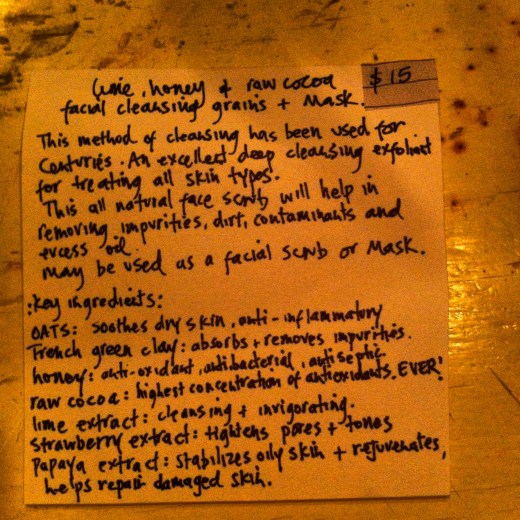 lime, honey & raw cocoa
$15
facial cleansing grains + Mask.
This method of cleansing has been used for
Centuries. An excellent deep cleansing exfoliant
for treating all skin types.
This all natural face scrub will help in
removing impurities, dirt, contaminants and
excess oil.
may be used as a facial scrub or Mask.
:key ingredients:
OATS: soothes dry skin, anti-inflammatory
French green clay: absorbs + removes impurities.
honey: anti-oxidant, antibacterial, antiseptic.
raw cocoa: highest concentration of antioxidants. EVER!
lime extract: cleansing + invigorating.
strawberry extract: tightens pores + tones
Papaya extract: stabilizes oily skin + rejuvenates,
helps repair damaged skin.